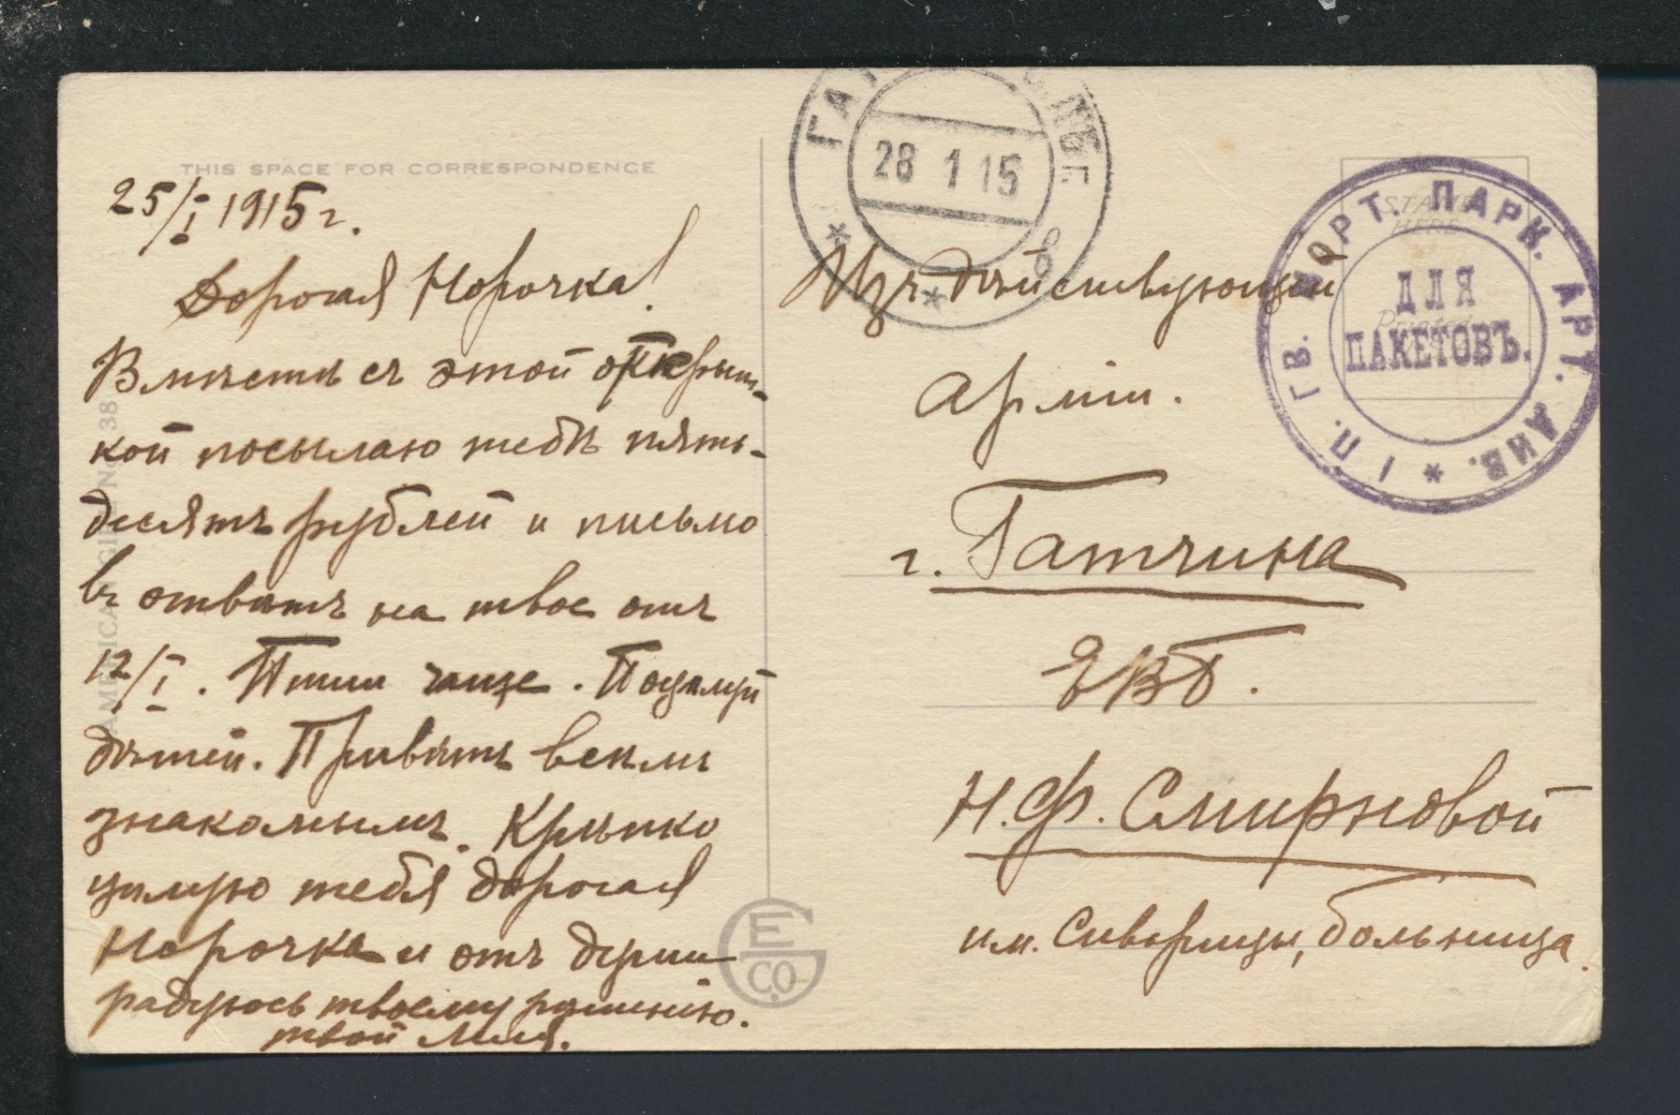 THIS SPACE FOR CORRESPONDENCE
25/I 1915 г.
Дорогая Норочка!
Вместѣ съ этой открыт-
кой посылаю тебѣ пять-
десятъ рублей и письмо
въ отвѣтъ на твое отъ
12/I. Пиши чаще. Поцѣлуй
дѣтей. Привѣтъ всѣмъ
знакомымъ. Крѣпко
цѣлую тебя дорогая
Норочка и отъ души
радуюсь твоему рѣшенію.
твой Леля.
AMERICAN GIRL No. 38
E
G
CO.
28 1 15
в
STAMP
HERE
1 П. ГВ. МОРТ. ПАРК. АРТ. ДИВ.
ДЛЯ
ПАКЕТОВЪ.
Изъ дѣйствующей
Арміи.
г. Гатчина
ЕВБ.
Н. Ф. Смирновой
им. Сиворицы, больница.